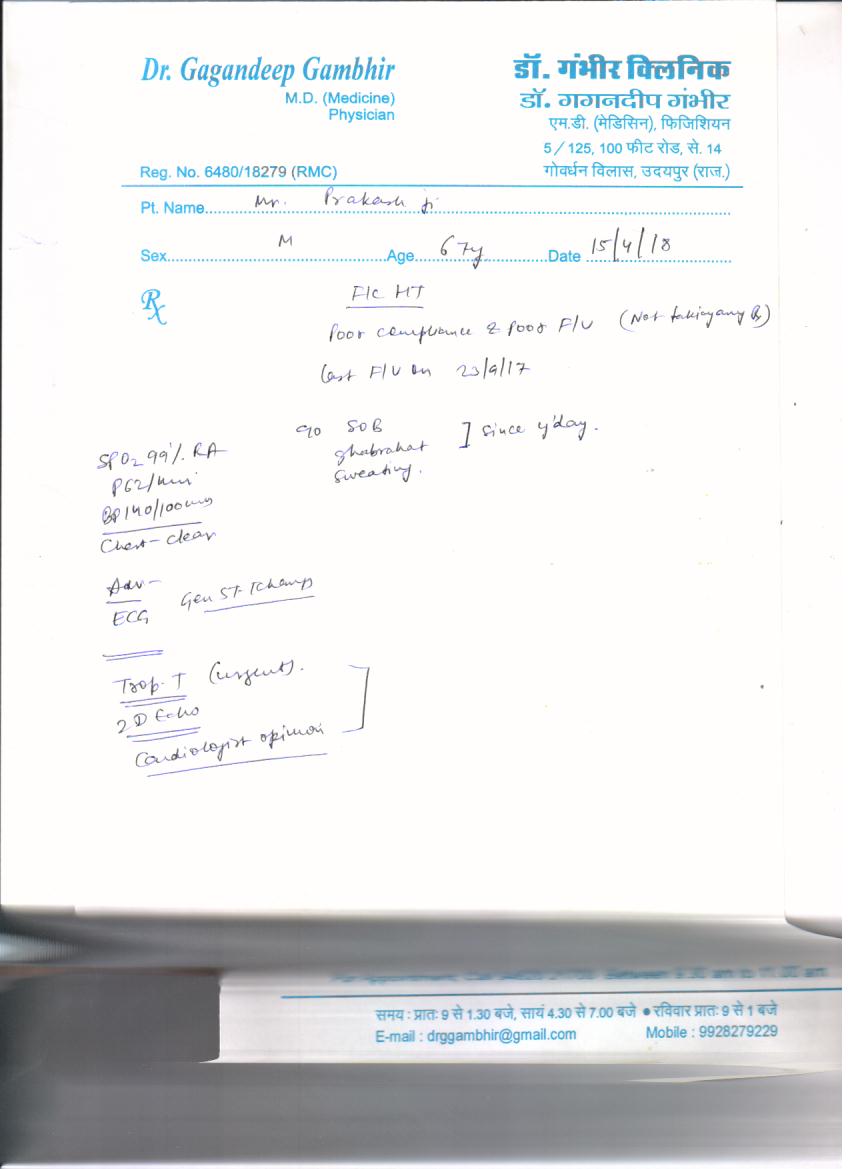 Dr. Gagandeep Gambhir
M.D. (Medicine)
Physician
Reg. No. 6480/18279 (RMC)
डॉ. गंभीर क्लिनिक
डॉ. गगनदीप गंभीर
एम.डी. (मेडिसिन), फिजिशियन
5/125, 100 फीट रोड, से. 14
गोवर्धन विलास, उदयपुर (राज.)
Pt. Name Mr. Prakash ji
Sex M Age 67y Date 15/4/18
Rx
F/C HT
Poor compliance & poor F/U (Not taking any Rx)
Last F/U on 23/9/17
c/o SOB
ghabrahat ] since y'day.
sweating.
SPO2 99% RA
P62/min
BP140/100mmg
Chest - clear
Adv -
ECG Gen ST-T
Trop. T (urgent).
2D Echo
Cardiologist opinion
समय : प्रातः 9 से 1.30 बजे, सायं 4.30 से 7.00 बजे ● रविवार प्रातः 9 से 1 बजे
E-mail : drggambhir@gmail.com Mobile : 9928279229